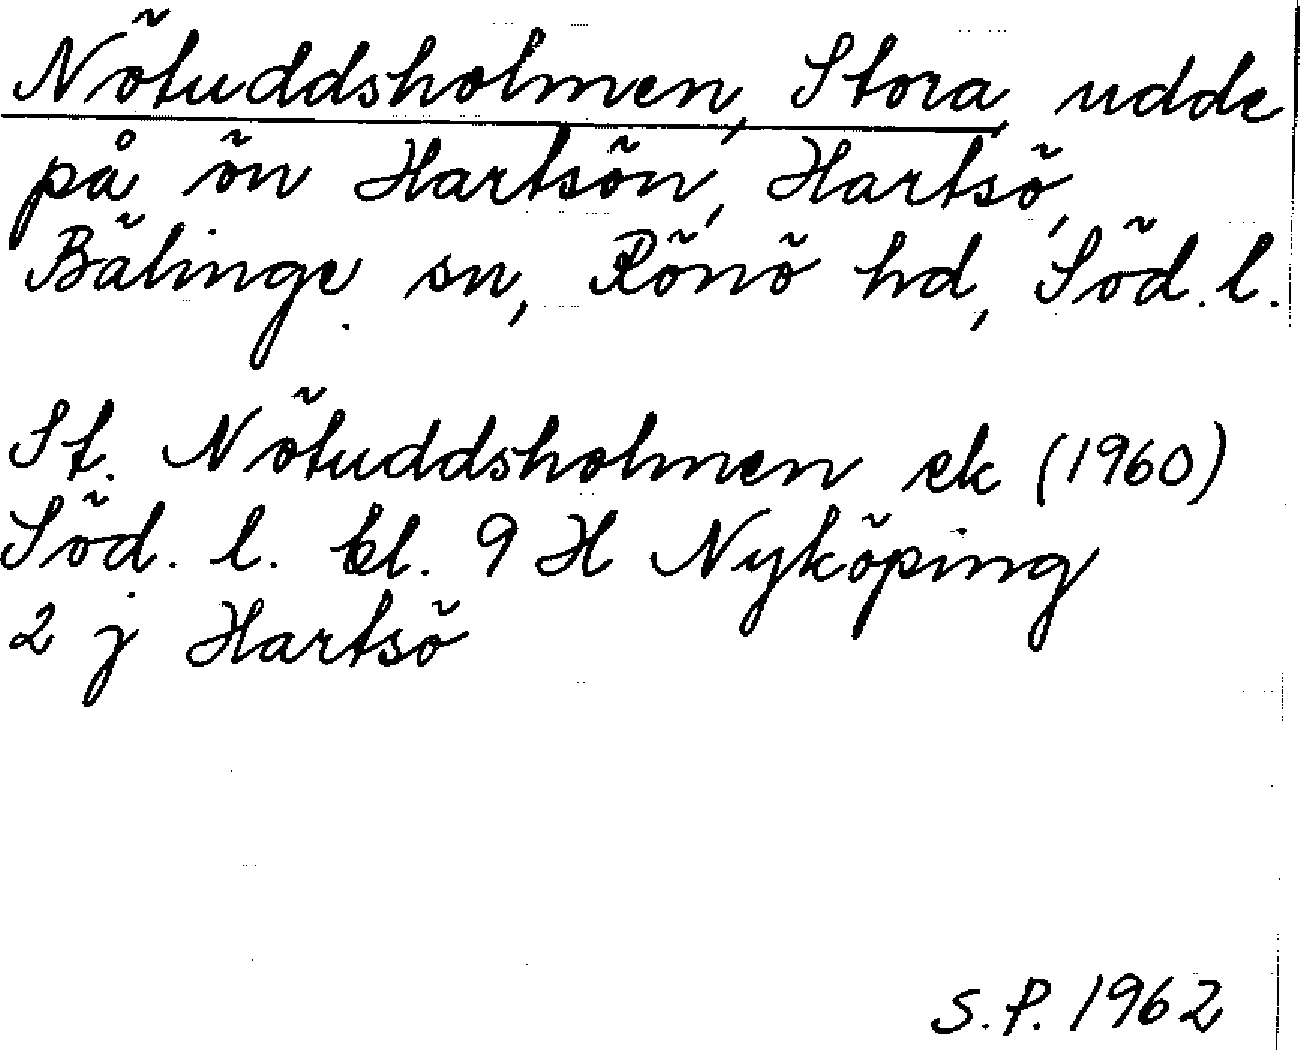 Nötuddsholmen, Stora, udde
på ön Hartsön, Hartsö,
Bälinge sn, Rönö hd, Söd. l.
St. Nötuddsholmen ek (1960)
Söd. l. bl. 9 H Nyköping
2 j Hartsö
S.P. 1962